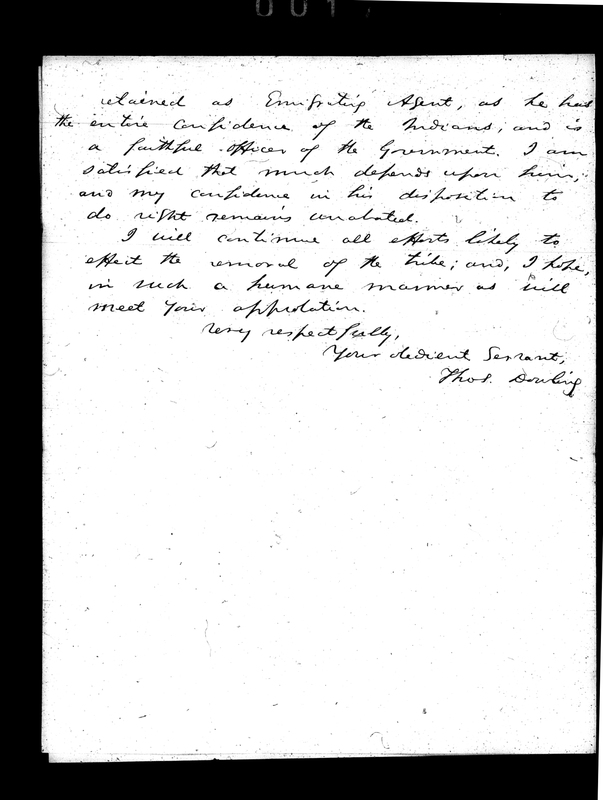 001
retained as Emigrating Agent, as he has
the entire confidence of the Indians; and is
a faithful officer of the Government. I am
satisfied that much depends upon him;
and my confidence in his disposition to
do right remains unabated.
I will continue all efforts likely to
effect the removal of the tribe; and, I hope,
in such a humane manner as will
meet your approbation.
Very respectfully,
Your obedient Servant,
Thos. Dowling